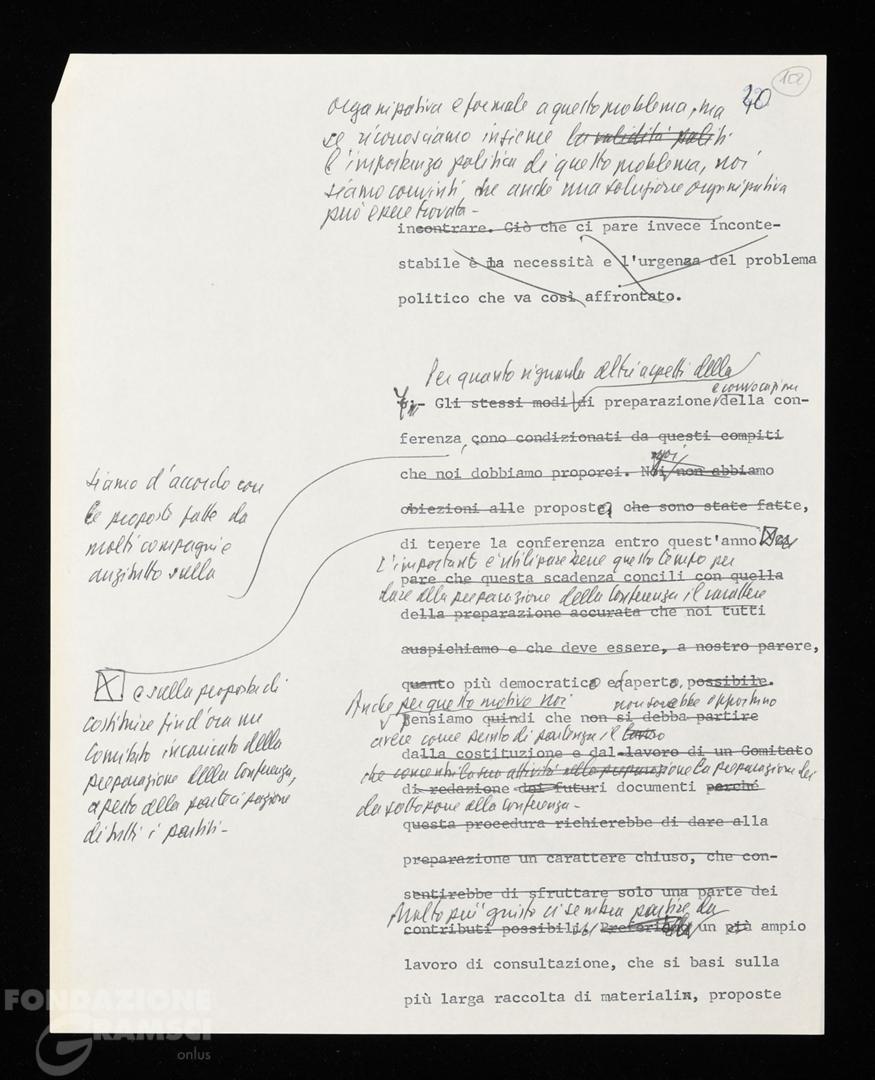 102
20
organizzativa e formale a questo problema, ma
se riconosciamo insieme la validità politi
l'importanza politica di questo problema, noi
siamo convinti che anche una soluzione organizzativa
può essere trovata -
incontrare. Ciò che ci pare invece inconte-
stabile è la necessità e l'urgenza del problema
politico che va così affrontato.
Per quanto riguarda altri aspetti della
e convocazione
Gli stessi modi di preparazione della con-
ferenza, sono condizionati da questi compiti
noi
che noi dobbiamo proporci. Noi, non abbiamo
obiezioni alle proposte, che sono state fatte,
di tenere la conferenza entro quest'anno
siamo d'accordo con
le proposte fatte da
molti compagni e
anzitutto sulla
L'importante è utilizzare bene questo tempo per
pare che questa scadenza concili con quella
dare alla preparazione della Conferenza il carattere
della preparazione accurata che noi tutti
auspichiamo e che deve essere, a nostro parere,
quanto più democratico e aperto, possibile.
X e sulla proposta di
costituire fin d'ora un
Comitato incaricato della
preparazione della Conferenza,
aperto alla partecipazione
di tutti i partiti -
Anche per questo motivo noi non sarebbe opportuno
pensiamo quindi che non si debba partire
avere come punto di partenza il
dalla costituzione e dal lavoro di un Comitato
che concentri la sua attività nella preparazione la preparazione dei
di redazione dei futuri documenti perché
da sottoporre alla Conferenza -
questa procedura richierebbe di dare alla
preparazione un carattere chiuso, che con-
sentirebbe di sfruttare solo una parte dei
Molto più giusto ci sembra partire da
contributi possibili. un più ampio
lavoro di consultazione, che si basi sulla
più larga raccolta di materiali, proposte
FONDAZIONE
GRAMSCI
onlus